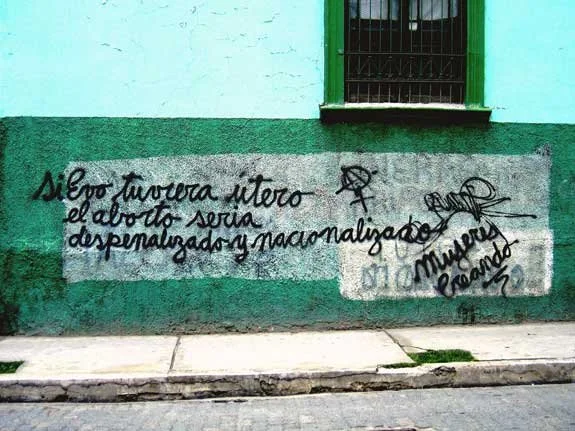 Si Evo tuviera útero
el aborto sería
despenalizado y nacionalizado
Mujeres
Creando